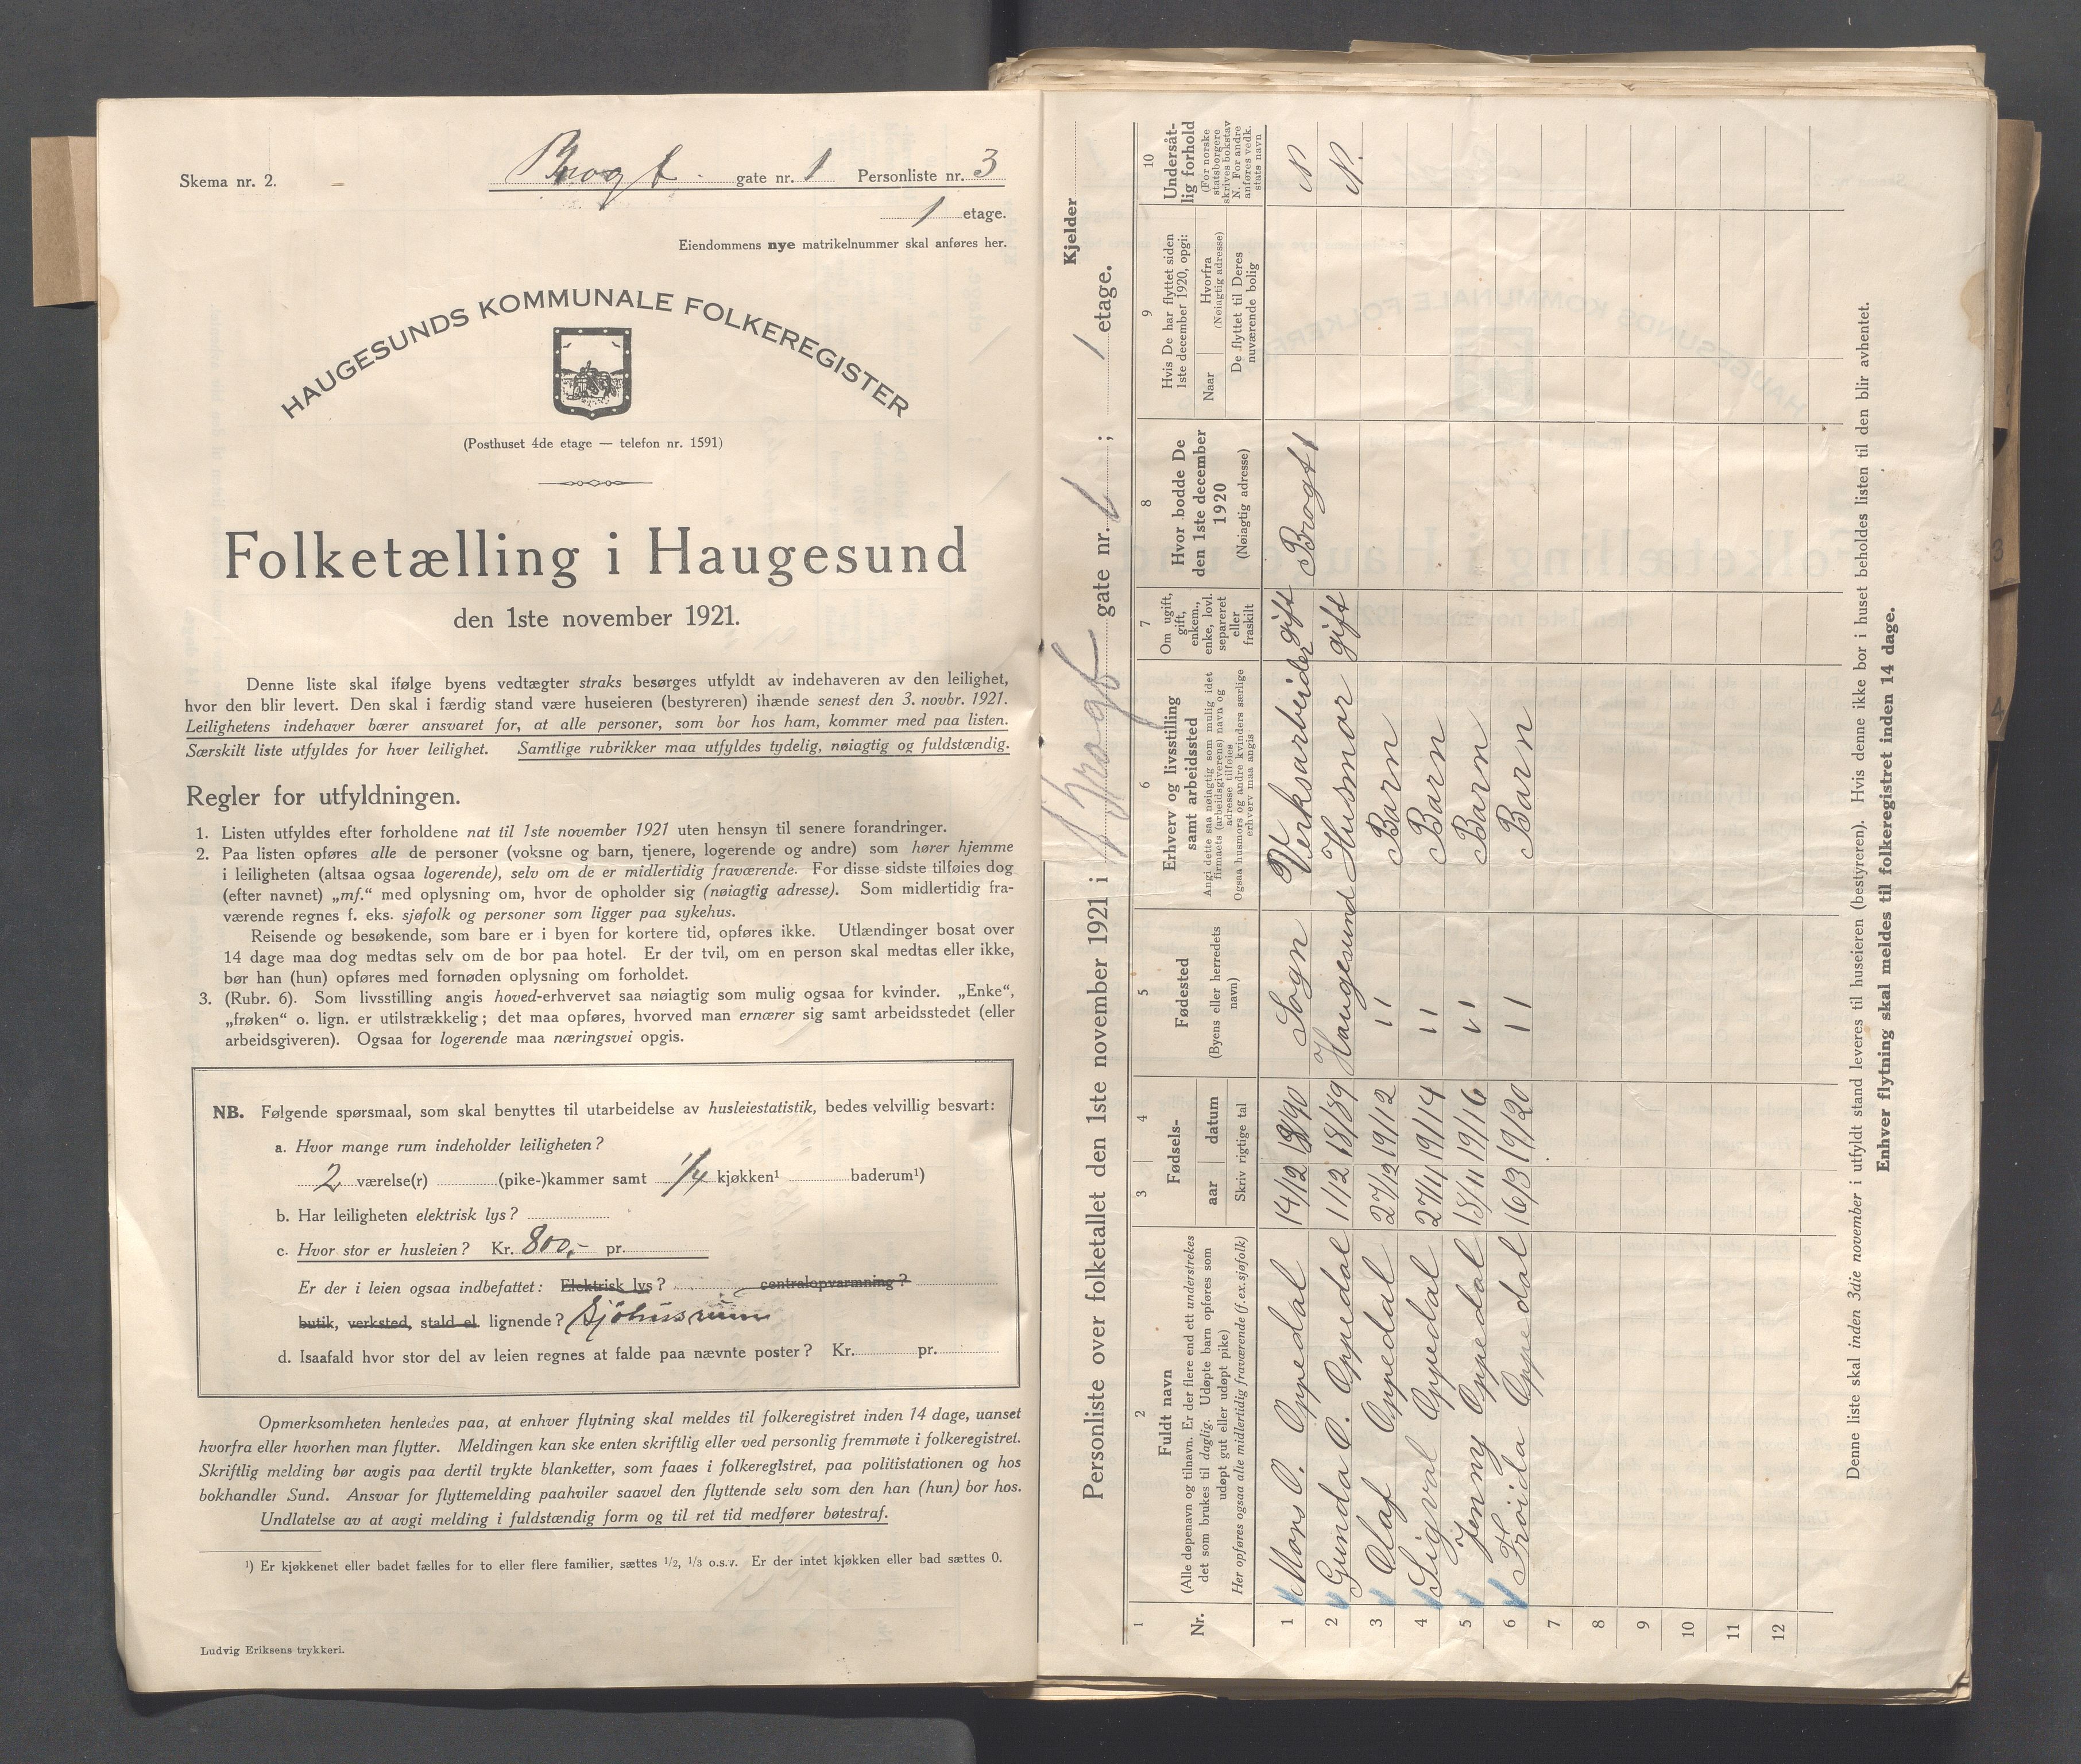 Skema nr. 2.
Brogt. gate nr. 1 Personliste nr. 3
1 etage.
Eiendommens nye matrikelnummer skal anføres her.
HAUGESUNDS KOMMUNALE FOLKEREGISTER
(Posthuset 4de etage — telefon nr. 1591)
Folketælling i Haugesund
den 1ste november 1921.
Denne liste skal ifølge byens vedtægter straks besørges utfyldt av indehaveren av den leilighet,
hvor den blir levert. Den skal i færdig stand være huseieren (bestyreren) ihænde senest den 3. novbr. 1921.
Leilighetens indehaver bærer ansvaret for, at alle personer, som bor hos ham, kommer med paa listen.
Særskilt liste utfyldes for hver leilighet. Samtlige rubrikker maa utfyldes tydelig, nøiagtig og fuldstændig.
Regler for utfyldningen.
1. Listen utfyldes efter forholdene nat til 1ste november 1921 uten hensyn til senere forandringer.
2. Paa listen opføres alle de personer (voksne og barn, tjenere, logerende og andre) som hører hjemme
i leiligheten (altsaa ogsaa logerende), selv om de er midlertidig fraværende. For disse sidste tilføies dog
(efter navnet) „mf.“ med oplysning om, hvor de opholder sig (nøiagtig adresse). Som midlertidig fra-
værende regnes f. eks. sjøfolk og personer som ligger paa sykehus.
Reisende og besøkende, som bare er i byen for kortere tid, opføres ikke. Utlændinger bosat over
14 dage maa dog medtas selv om de bor paa hotel. Er der tvil, om en person skal medtas eller ikke,
bør han (hun) opføres med fornøden oplysning om forholdet.
3. (Rubr. 6). Som livsstilling angis hoved-erhvervet saa nøiagtig som mulig ogsaa for kvinder. „Enke“,
„frøken“ o. lign. er utilstrækkelig; det maa opføres, hvorved man ernærer sig samt arbeidsstedet (eller
arbeidsgiveren). Ogsaa for logerende maa næringsvei opgis.
NB. Følgende spørsmaal, som skal benyttes til utarbeidelse av husleiestatistik, bedes velvillig besvart:
a. Hvor mange rum indeholder leiligheten?
2 værelse(r) (pike-)kammer samt 1/4 kjøkken¹ baderum¹)
b. Har leiligheten elektrisk lys?
c. Hvor stor er husleien? Kr. 800,- pr.
Er der i leien ogsaa indbefattet: Elektrisk lys? centralopvarmning?
butik, verksted, stald el. lignende? Sjöhusrum
d. Isaafald hvor stor del av leien regnes at falde paa nævnte poster? Kr. pr.
Opmerksomheten henledes paa, at enhver flytning skal meldes til folkeregistret inden 14 dage, uanset
hvorfra eller hvorhen man flytter. Meldingen kan ske enten skriftlig eller ved personlig fremmøte i folkeregistret.
Skriftlig melding bør avgis paa dertil trykte blanketter, som faaes i folkeregistret, paa politistationen og hos
bokhandler Sund. Ansvar for flyttemelding paahviler saavel den flyttende selv som den han (hun) bor hos.
Undlatelse av at avgi melding i fuldstændig form og til ret tid medfører bøtestraf.
¹) Er kjøkkenet eller badet fælles for to eller flere familier, sættes 1/2, 1/3 o.s.v. Er der intet kjøkken eller bad sættes 0.
Ludvig Eriksens trykkeri.
Kjelder
Personliste over folketallet den 1ste november 1921 i Brogt gate nr. 1; 1 etage.
1 2 3 4 5 6 7 8 9 10
Nr.
Fuldt navn
(Alle døpenavn og tilnavn. Er der flere end ett understrekes
det som brukes til daglig. Udøpte barn opføres som
udøpt gut eller udøpt pike)
Her opføres ogsaa alle midlertidig fraværende (f. ex. sjøfolk)
Fødsels-
aar datum
Skriv rigtige tal
Fødested
(Byens eller herredets
navn)
Erhverv og livsstilling
samt arbeidssted
Angi dette saa nøiagtig som mulig idet
firmaets (arbeidsgiverens) navn og
adresse tilføies
Ogsaa husmors og andre kvinders særlige
erhverv maa angis
Om ugift,
gift,
enkem.,
enke, lovl.
separeret
eller
fraskilt
Hvor bodde De
den 1ste december
1920
(Nøiagtig adresse)
Hvis De har flyttet siden
1ste december 1920, opgi:
Naar
Hvorfra
(Nøiagtig adresse)
De flyttet til Deres
nuværende bolig
Undersåt-
lig forhold
(For norske
statsborgere
skrives bokstav
N. For andre
anføres vedk.
stats navn
1 Mons O. Oppedal 14/12 90 Sogn Verksarbeider gift Brogt 1 N
2 Gunda O. Oppedal 1/12 18/89 Haugesund Husmor gift N.
3 Olaf Oppedal 27/12 19/12 " Barn
4 Sigval Oppedal 27/4 19/14 " Barn
5 Jenny Oppedal 18/11 19/16 " Barn
6 Fröida Oppedal 16/3 19/20 " Barn
7
8
9
10
11
12
Denne liste skal inden 3die november i utfyldt stand leveres til huseieren (bestyreren). Hvis denne ikke bor i huset beholdes listen til den blir avhentet.
Enhver flytning skal meldes til folkeregistret inden 14 dage.
3
4